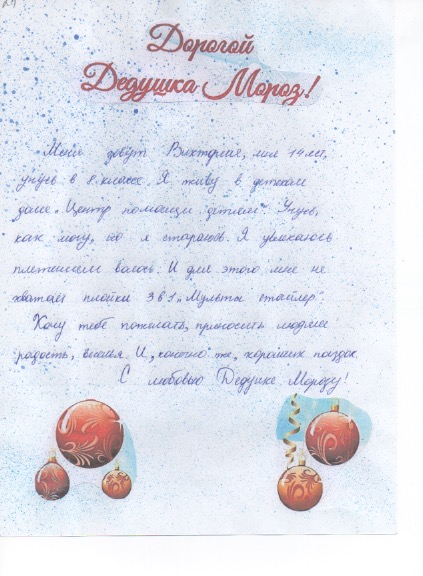 Дорогой
Дедушка Мороз!
Меня зовут Виктория, мне 14 лет,
учусь в 8 классе. Я живу в детском
доме „Центр помощи детям". Учусь,
как могу, но я стараюсь. Я увлекаюсь
плетением волос. И для этого мне не
хватает плойки 3 в 1 „Мульти стайлер".
Хочу тебе пожелать, приносить людям
радость, веселья. И, конечно же, хороших поездок
С любовью Дедушке Морозу!